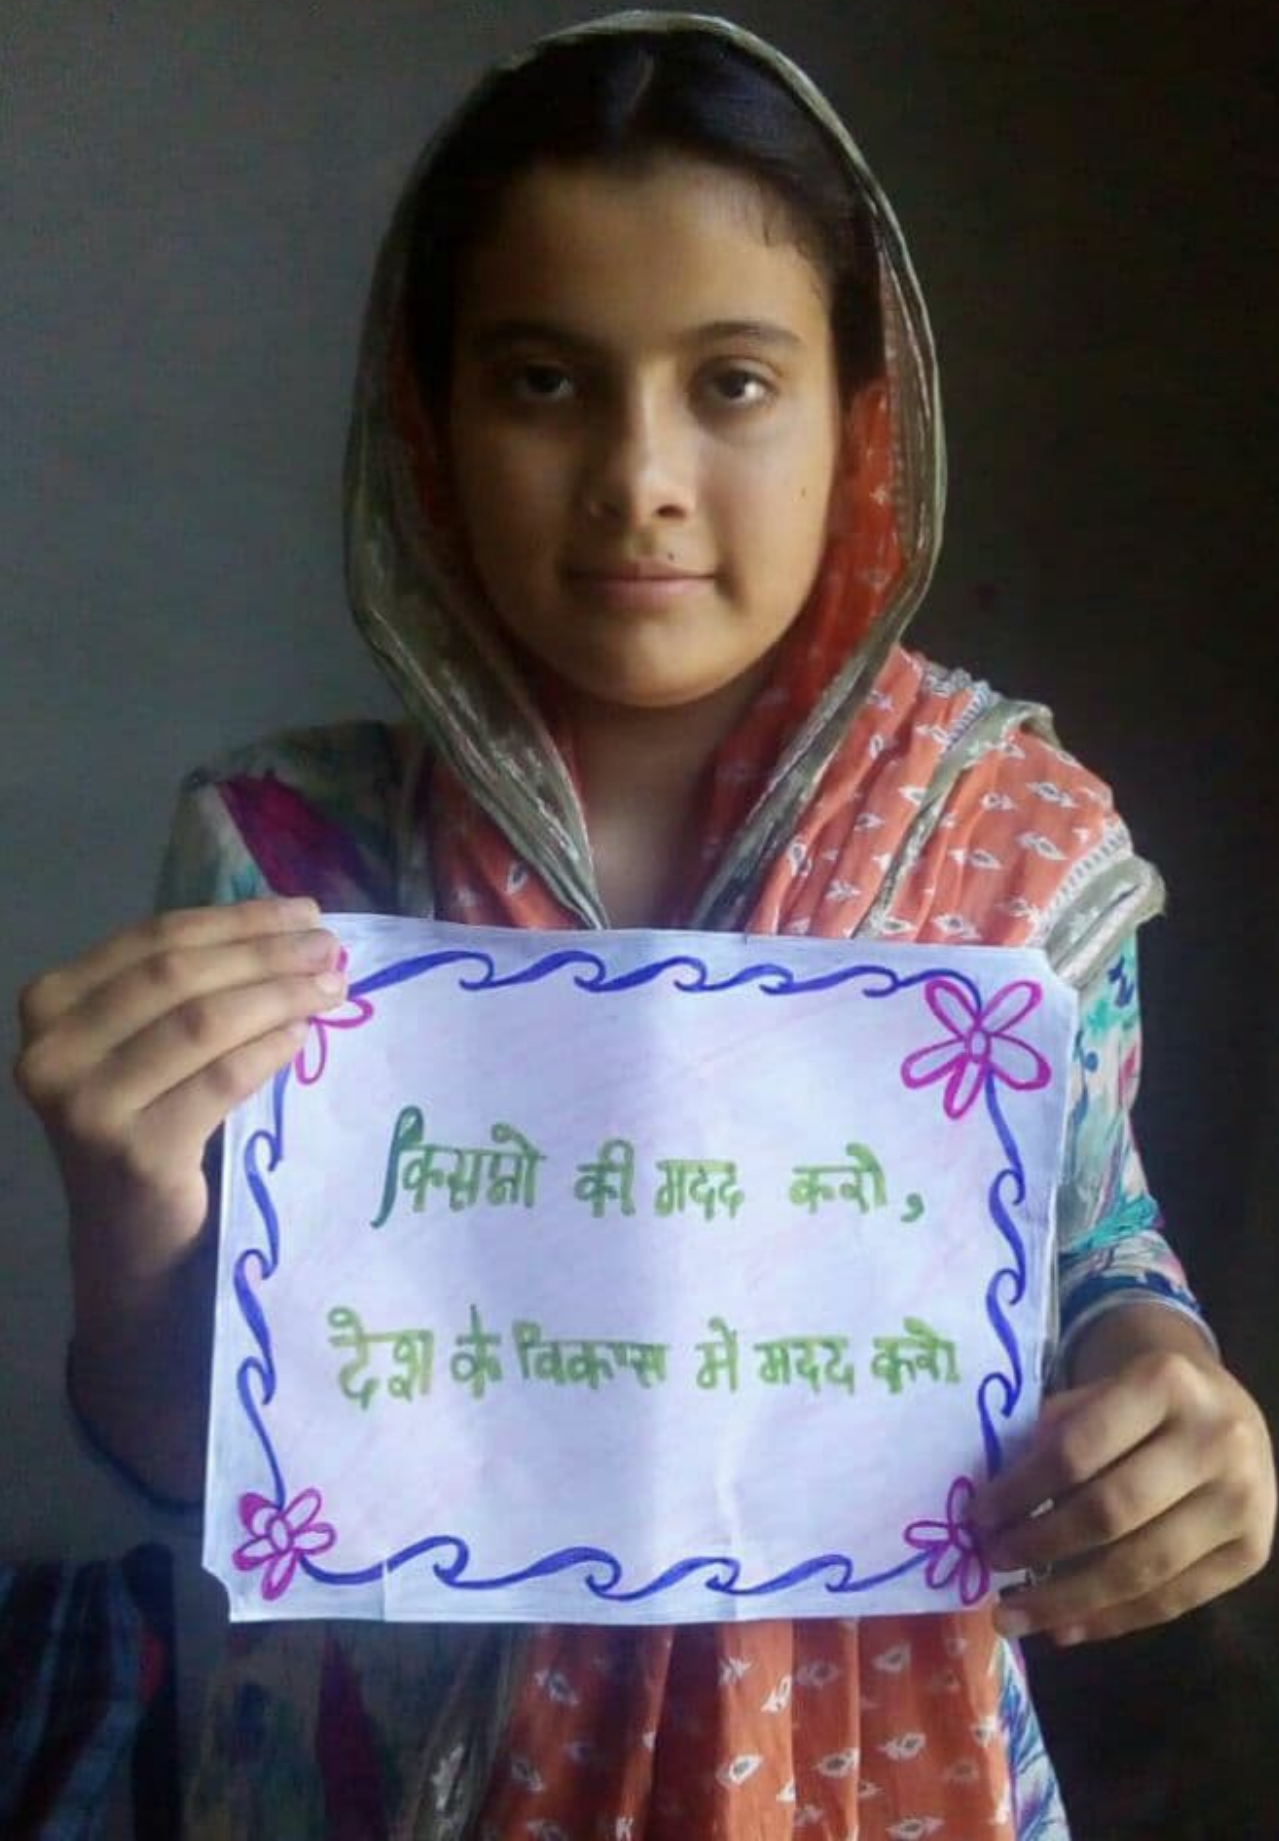 किसानो की मदद करो,
देश के विकास में मदद करो